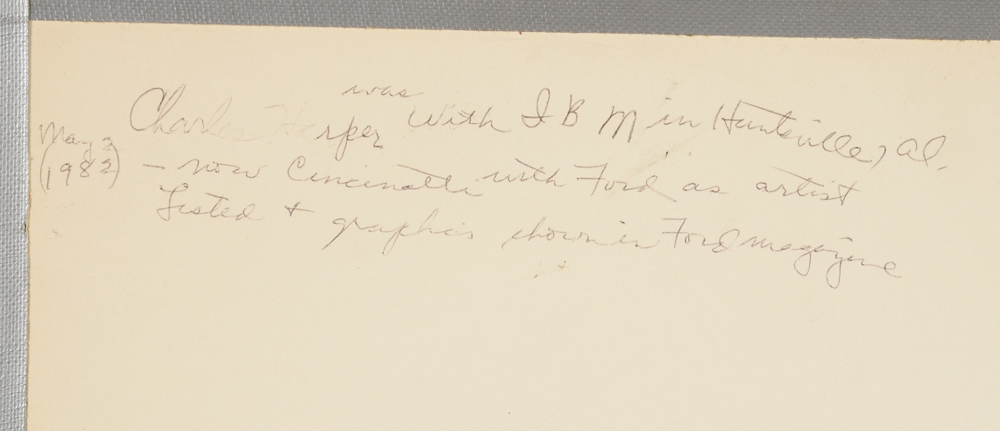 was
Charles Harper with I B M in Huntsville, Al.
May 2
(1982) - now Cincinatti with Ford as artist
Listed + graphics shown in Ford magazine